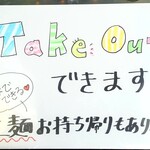 Take Ou
できます
できる
麺お持ち帰りもあり